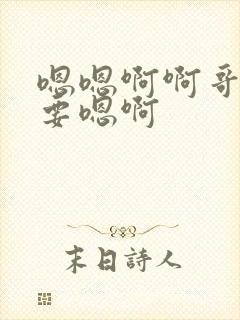 嗯嗯啊啊哥
要嗯啊
末日詩人